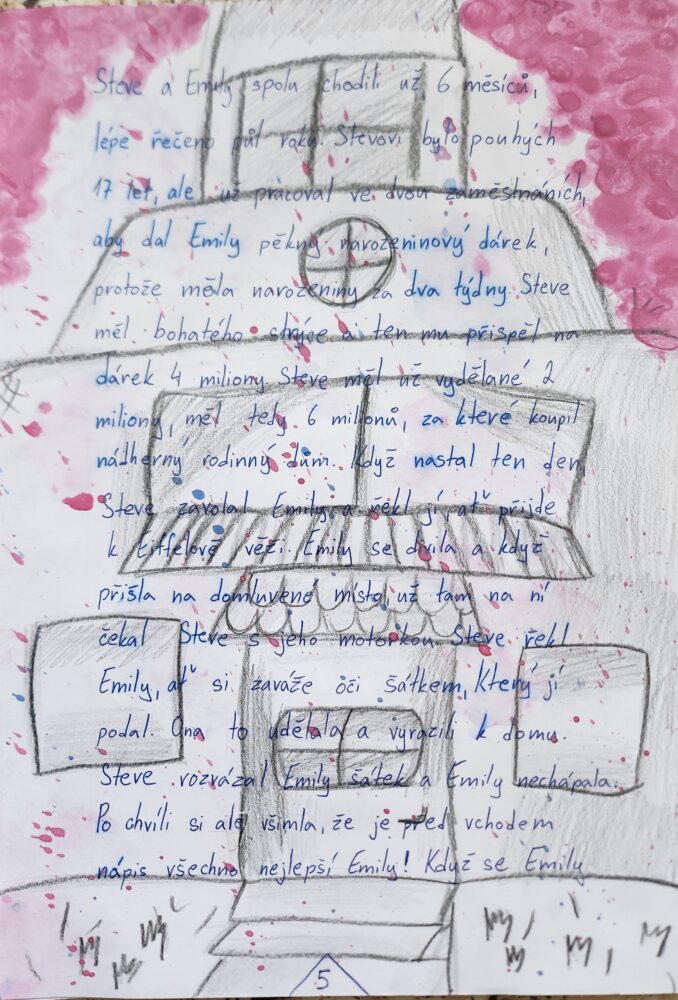 Steve a Emily spolu chodili už 6 měsíců,
lépe řečeno půl roku. Stevovi bylo pouhých
17 let, ale už pracoval ve dvou zaměstnáních,
aby dal Emily pěkný narozeninový dárek,
protože měla narozeniny za dva týdny. Steve
měl bohatého strýce a ten mu přispěl na
dárek 4 miliony. Steve měl už vydělané 2
miliony, měl tedy 6 milionů, za které koupil
nádherný rodinný dům. Když nastal ten den,
Steve zavolal Emily a řekl jí ať přijde
k Eiffelově věži. Emily se divila a když
přišla na domluvené místo, už tam na ní
čekal Steve s jeho motorkou. Steve řekl
Emily, ať si zaváže oči šátkem, který jí
podal. Ona to udělala a vyrazili k domu.
Steve rozvázal Emily šátek a Emily nechápala.
Po chvíli si ale všimla, že je před vchodem
nápis všechno nejlepší Emily! Když se Emily
5